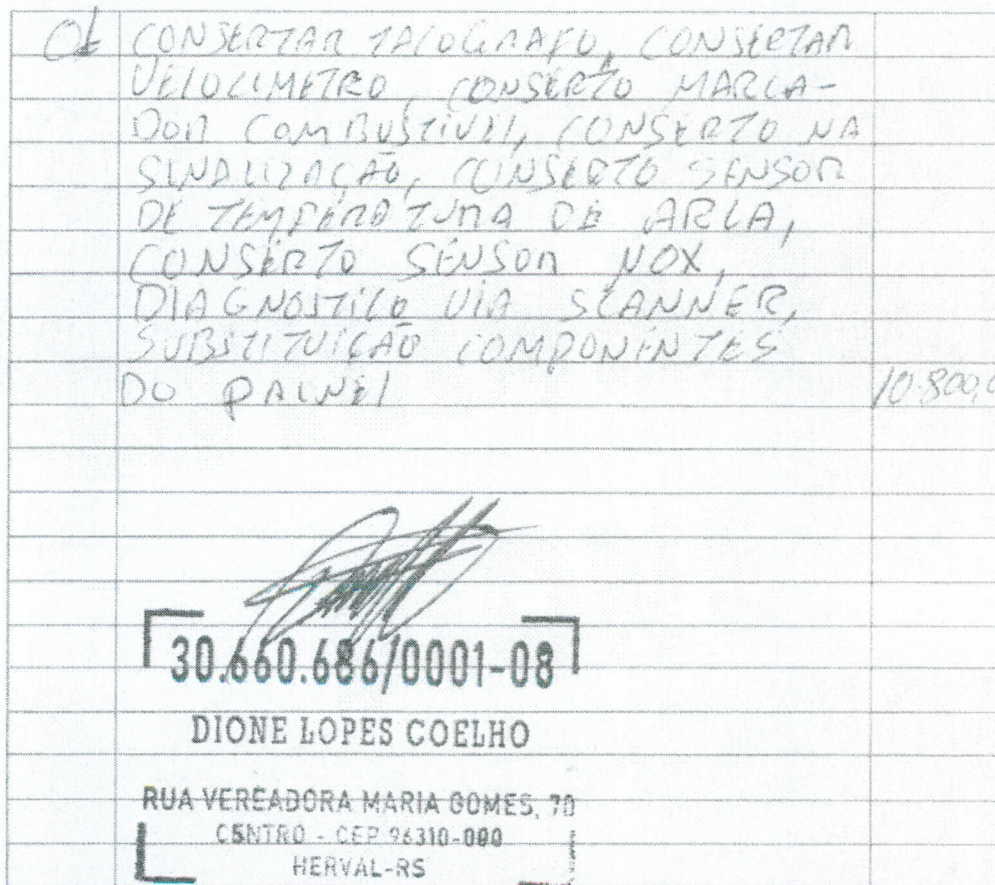 01 CONSERTAR TACOGRAFO, CONSERTAR
VELOCIMETRO, CONSERTO MARCA-
DOR COMBUSTIVEL, CONSERTO NA
SINALIZAÇÃO, CONSERTO SENSOR
DE TEMPERATURA DE ARLA,
CONSERTO SENSOR NOX,
DIAGNOSTICO VIA SCANNER,
SUBSTITUIÇÃO COMPONENTES
DO PAINEL 10.800,0
30.660.686/0001-08
DIONE LOPES COELHO
RUA VEREADORA MARIA GOMES, 70
CENTRO - CEP 96310-000
HERVAL-RS